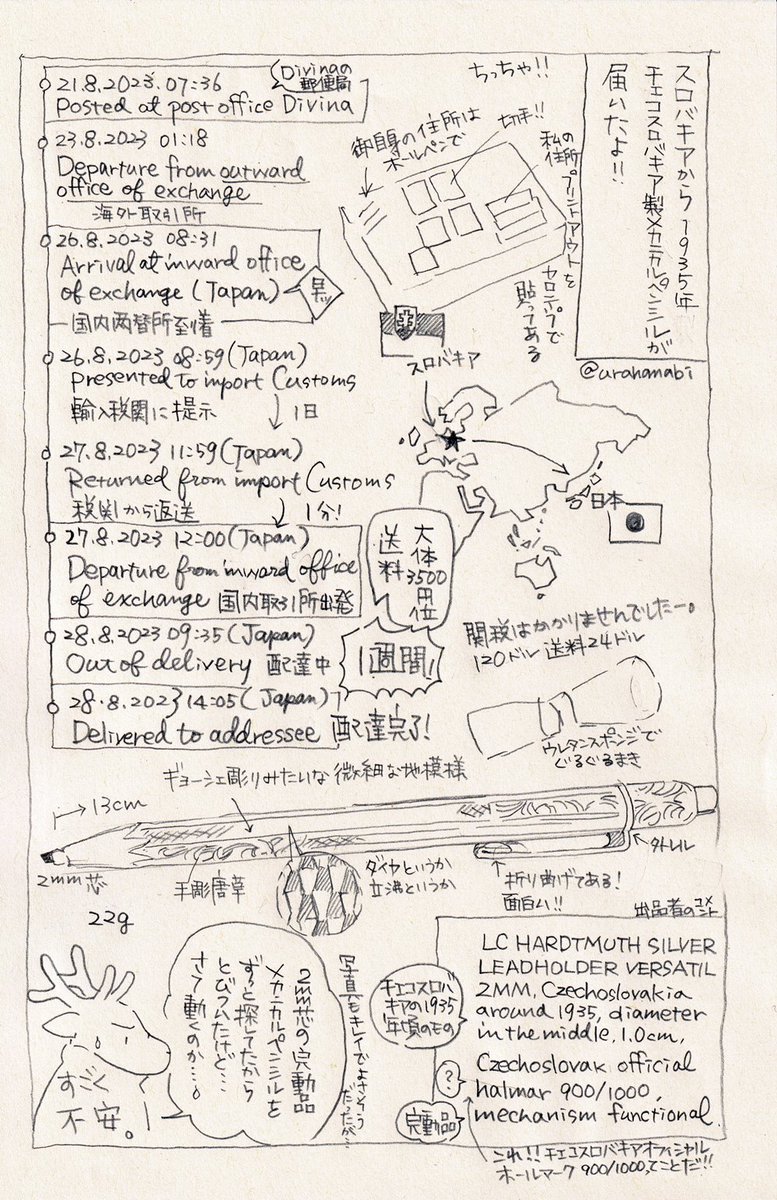 スロバキアから1935年
チェコスロバキア製メカニカルペンシルが
届いたよ!!
@urahanabi
21.8.2023. 07:36
Divinaの
郵便局
Posted at post office Divina
23.8.2023 01:18
Departure from outward
office of exchange
海外取引所
26.8.2023 08:31
Arrival at inward office
of exchange (Japan)
早ッ
国内両替所至着
26.8.2023 08:59 (Japan)
presented to inport Customs
輸入税関に提示
1日
27.8.2023 11:59 (Japan)
Returned from import Customs
税関から返送
1分!
27.8.2023 12:00 (Japan)
Departure from inward office
of exchange 国内取引所出発
28.8.2023 09:35 (Japan)
Out of delivery 配達中
1週間!
28.8.2023 14:05 (Japan)
Delivered to addressee 配達完了!
ちっちゃ!!
御自身の住所は
ボールペンで
切手!!
私の
住所プリントアウトを
セロテープで
貼ってある
スロバキア
日本
送料
大体
3500円位
関税はかかりませんでしたー。
120ドル 送料24ドル
ウレタンスポンジで
ぐるぐるまき
ギョーシェ彫りみたいな微細な地模様
13cm
2mm芯
22g
手彫唐草
ダイヤというか
立涌というか
折り曲げてある!
面白い!!
外レール
出品者のコメント
LC HARDTMUTH SILVER
LEADHOLDER VERSATIL
2MM, Czechoslovakia
around 1935, diameter
in the middle, 1.0cm,
Czechoslovak official
halmar 900/1000,
mechanism functional.
チェコスロバ
キアの1935
年頃のもの
?
完動品
これ!!チェコスロバキアオフィシャル
ホールマーク 900/1000ってことだ!!
写真もキレイでよさそう
だったが…
2mm芯の完動品
メカニカルペンシルを
ずっと探してたから
とびつくたけど…
さて動くのか…。
すごく
不安。